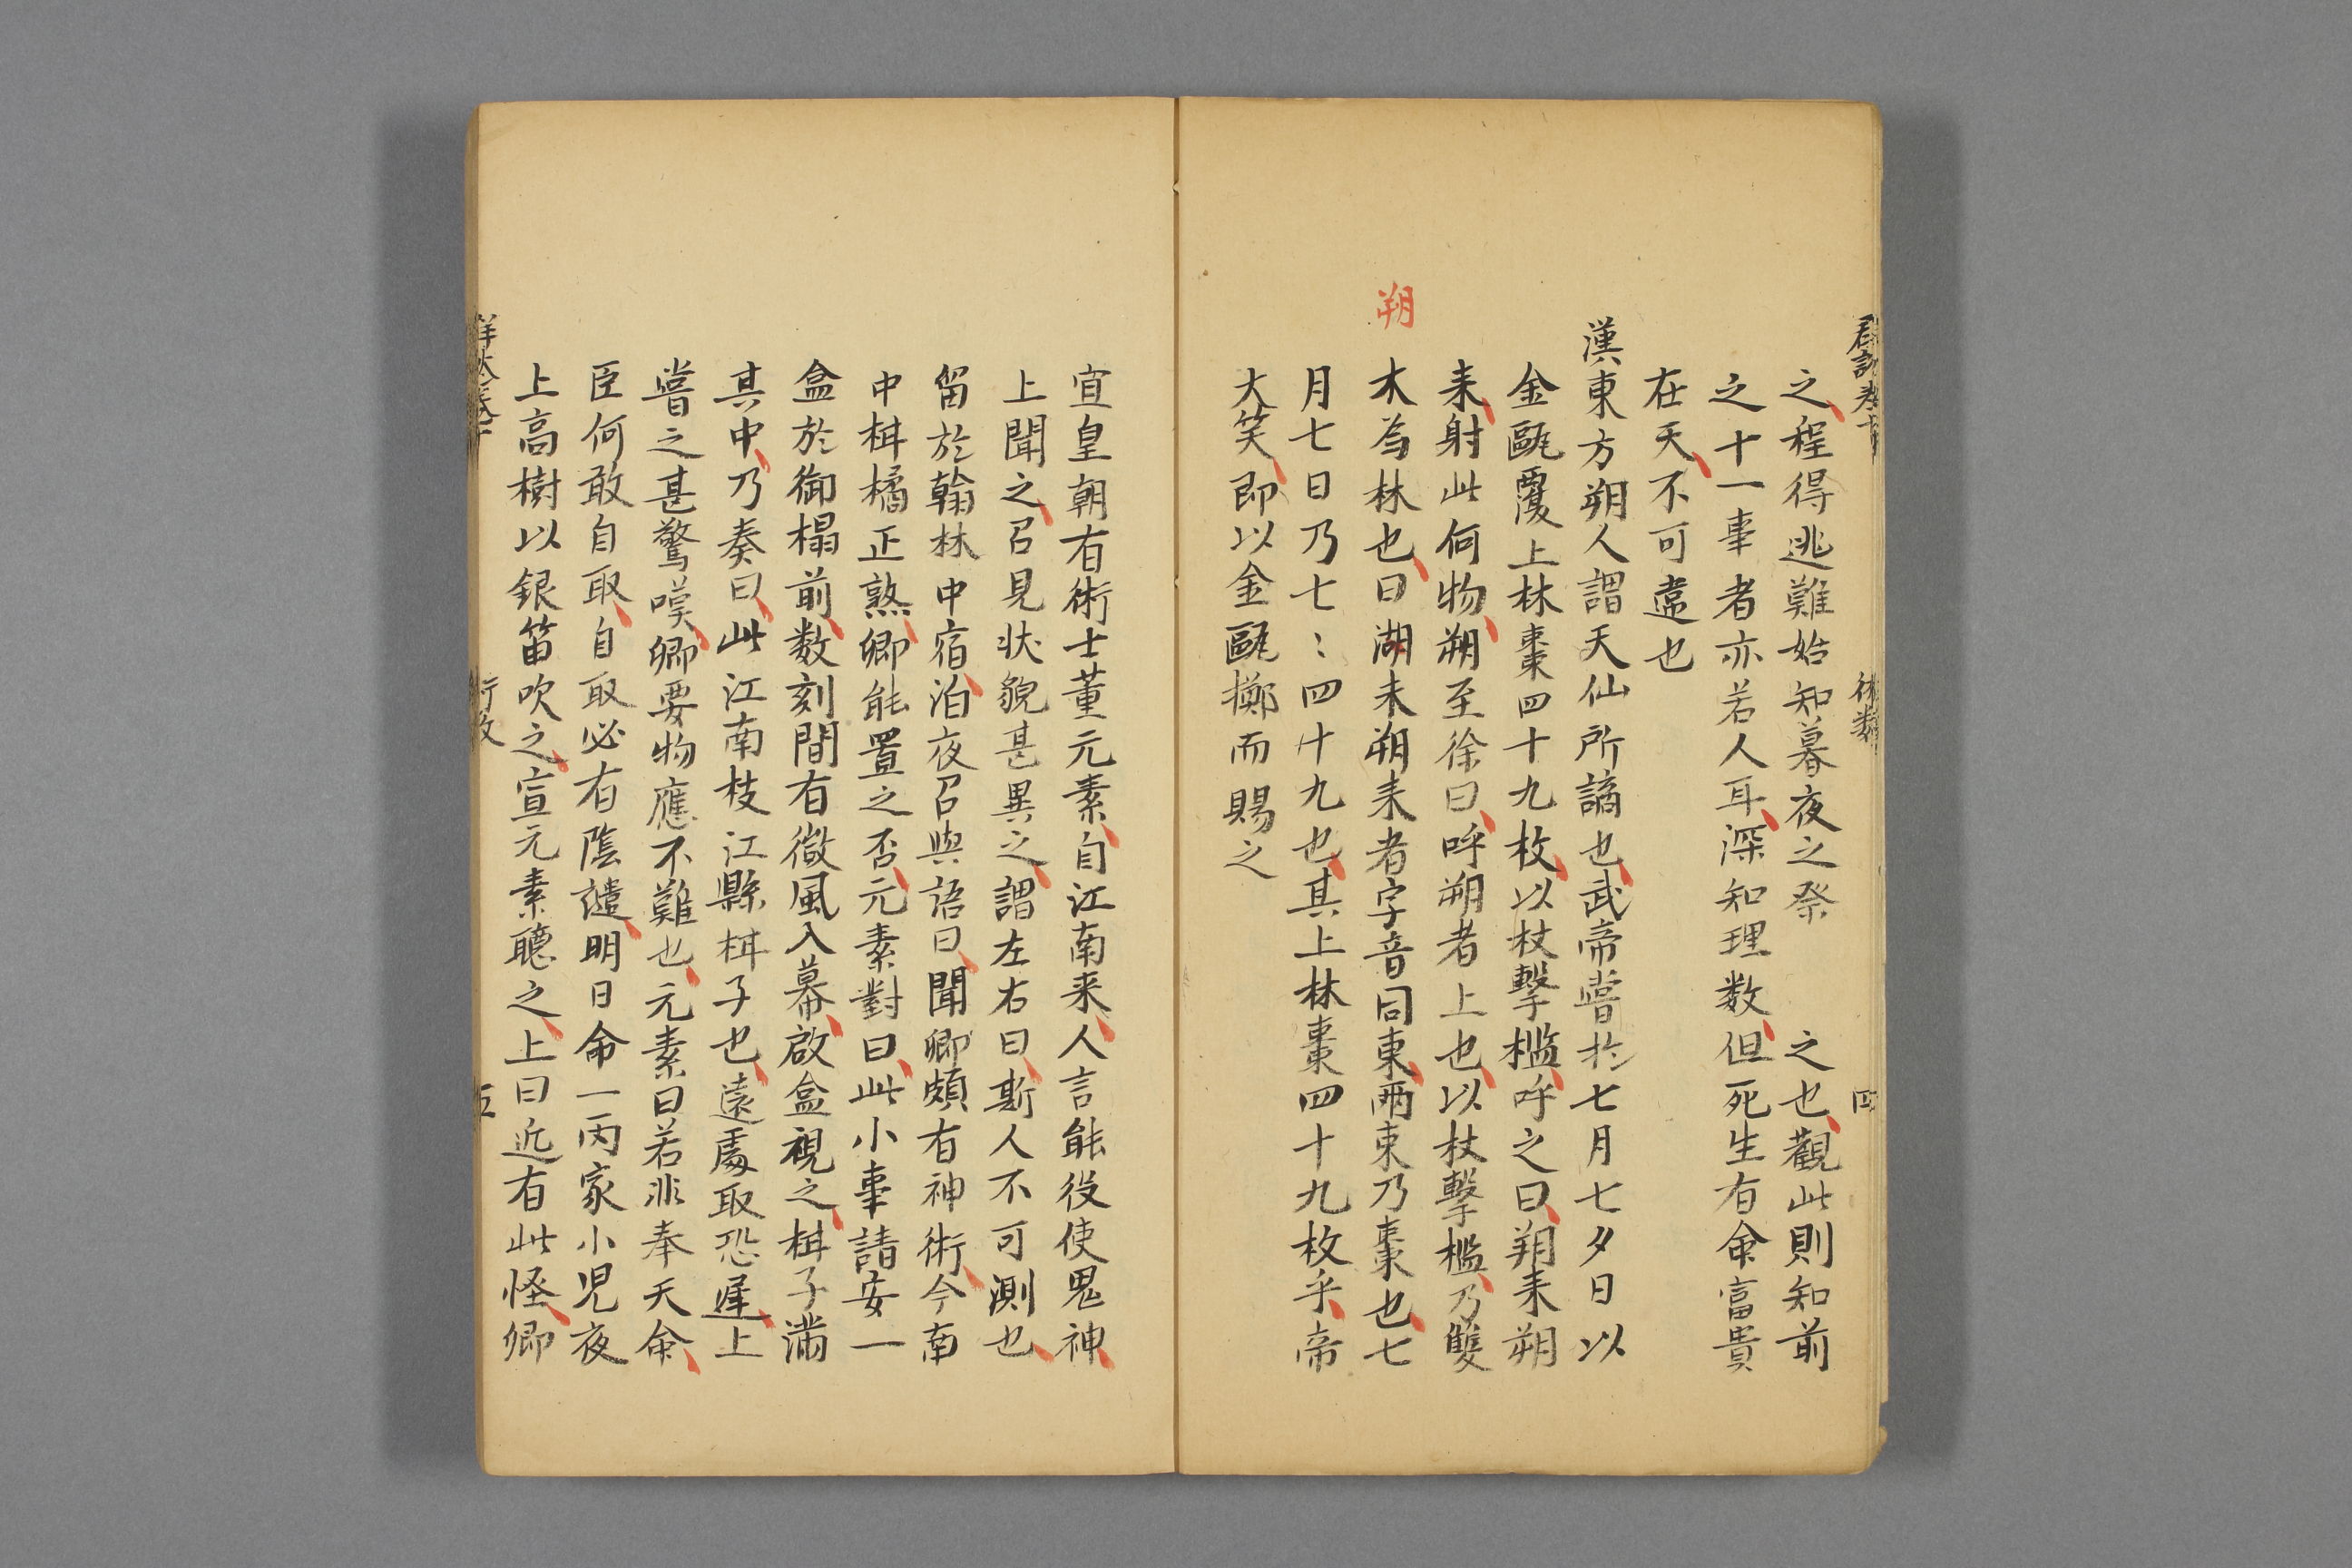 之程得逃難始知暮夜之祭　之也觀此則知前
之十一事者亦若人耳深知理数但死生有命富貴
在天不可違也
漢東方朔人謂天仙所謫也武帝嘗於七月七夕日以
金甌覆上林棗四十九枚以杖擊檻呼之曰朔来朔
来射此何物朔至徐曰呼朔者上也以杖擊檻乃雙
朔
木為林也曰湖来朔来者字音同東兩束乃棗也七
月七日乃七〻四十九也其上林棗四十九枚乎帝
大笑即以金甌擲而賜之
四
宣皇朝有術士董元素自江南来人言能役使鬼神
上聞之召見状貌甚異之謂左右曰斯人不可測也
留於翰林中宿泊夜召與語曰聞卿頗有神術今南
中柑橘正熟卿能置之否元素對曰此小事請安一
盒於御榻前数刻間有微風入幕啟盒視之柑子满
其中乃奏曰此江南枝江縣柑子也遠處取恐遲上
嘗之甚驚嘆卿要物應不難也元素曰若非奉天命
臣何敢自取自取必有陰譴明日命一丙家小児夜
上高樹以銀笛吹之宣元素聽之上曰近有此怪卿